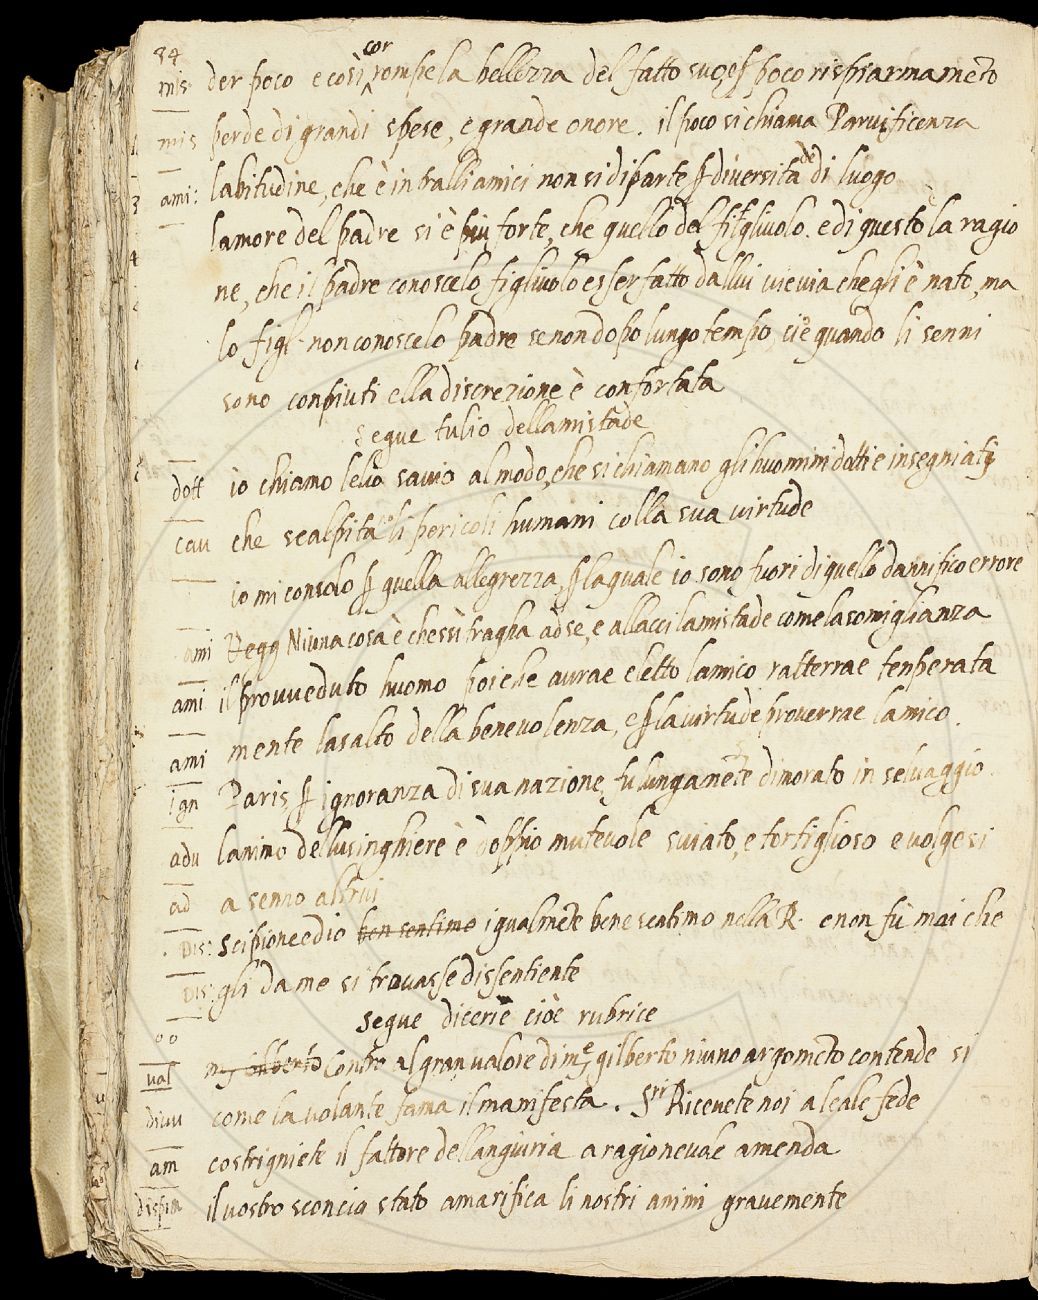 84
cor
mis der poco e così rompe la bellezza del fatto suo, e ꝑ poco rispiarmameto
mis perde di grandi spese, e grande onore. il poco si chiama Parvificenza
ami: labitudine, che è intralli amici non si diparte ꝑ diversitade di luogo
lamore del padre si è più forte, che quello del figliuolo. e di questo la ragio
ne, che il padre conosce lo figliuolo esser fatto da llui vie via che gli è nato, ma
lo figl. non conosce lo padre se non dopo lungo tempo, cie quando li senni
sono conpiuti ella discrezione è confortata
segue tulio dellamistade
doff io chiamo lelio savio al modo, che si chiamano gli huomini dotti e insegniati
cau che scalpitano li pericoli humani colla sua virtude
io mi consolo ꝑ quella allegrezza, ꝑ la quale io sono fuori di quello dannifico errore
ami Niuna cosa è che ssi traglia ad se, e allacci lamistade come la somiglianza
ami il provveduto huomo poiche avrae eletto lamico ratterrae tenperata
ami mente lasalto della benevolenza, e ꝑ la virtude proverrae lamico.
ign Paris, ꝑ ignoranza di sua nazione, fu lungamete dimorato in selvaggio
adu lanimo dellusinghiere è doppio mutevole sviato, e tortiglioso e volgesi
ad a senno altrui
Dis: scipione ed io ben sentimo igualmete bene sentimo nella R. e non fù mai che
Dis: gli da me si trovasse dissentiente
segue dicerie cioè rubrice
oo
val Gilberto Contro al gran valore di me gilberto niuno argometo contende si
divu come la volante fama il manifesta. Sri Ricevete noi a leale fede
am costrigniete il fattore dellangiuria a ragionevale amenda
dispia il vostro sconcio stato amarifica li nostri animi gravemente